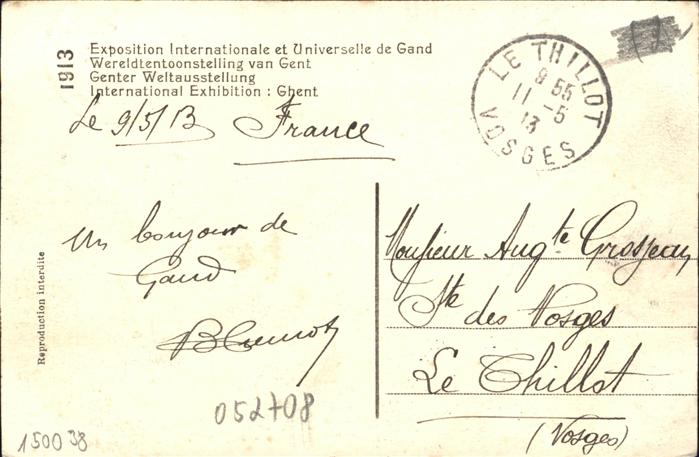 1913
Exposition Internationale et Universelle de Gand
Wereldtentoonstelling van Gent
Genter Weltausstellung
International Exhibition : Ghent
LE THILLOT
9 55
11 -5
13
VOSGES
Le 9/5/13 France
Un bonjour de
Gand
Reproduction interdite
Monsieur Aug^te Grosjean
Ste des Vosges
Le Thillot
(Vosges)
052708
150038